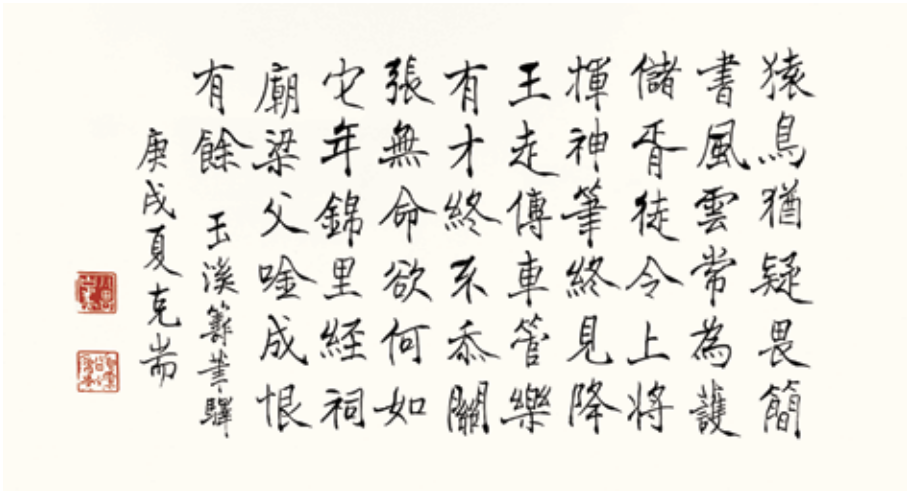 猿鳥猶疑畏簡
書風雲常為護
儲胥徒令上將
揮神筆終見降
王走傳車管樂
有才終不忝關
張無命欲何如
它年錦里經祠
廟梁父唫成恨
有餘 玉溪籌筆驛
庚戌夏克耑